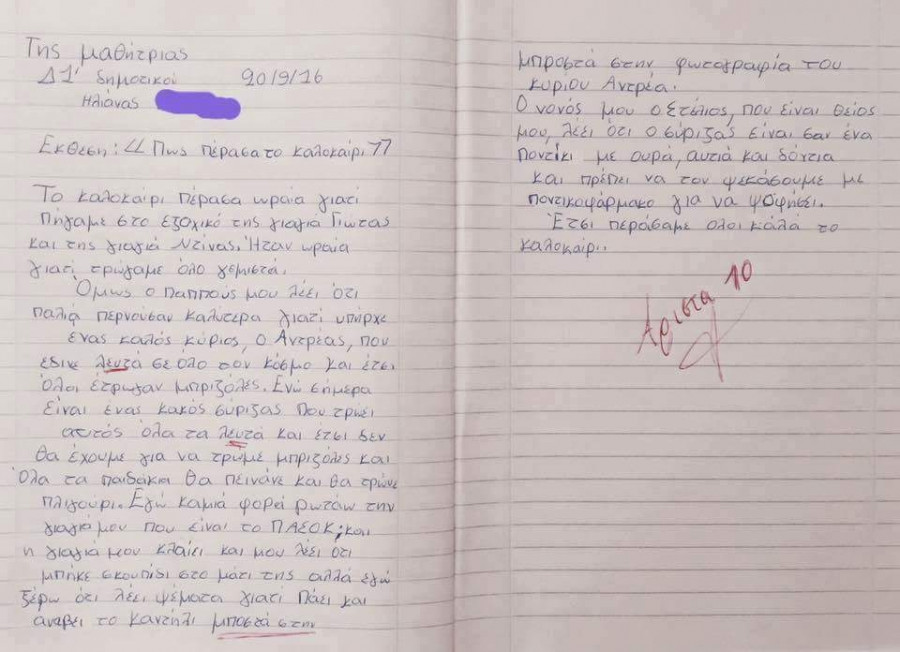 Της μαθήτριας
Δ1' δημοτικοί 20/9/16
Ηλιάνας
Εκθεση: << Πως πέρασα το καλοκαίρι >>
Το καλοκαίρι πέρασα ωραία γιατί
πήγαμε στο εξοχικό της γιαγιά Γιώτας
και της γιαγιά Ντίνας. Ήταν ωραία
γιατί τρώγαμε όλο γεμιστά.
Όμως ο παππούς μου λέει ότι
παλιά περνούσαν καλύτερα γιατί υπήρχε
ένας καλός κύριος, ο Αντρέας, που
έδινε λευτά σε όλο τον κόσμο και έτσι
όλοι έτρωγαν μπριζόλες. Ενώ σήμερα
είναι ένας κακός σύριζας που τρώει
αυτός όλα τα λευτά και έτσι δεν
θα έχουμε για να τρώμε μπριζόλες και
όλα τα παιδάκια θα πεινάνε και θα τρώνε
πλιγούρι. Εγώ καμιά φορά ρωτάω την
γιαγιά μου που είναι το ΠΑΣΟΚ; και
η γιαγιά μου κλαίει και μου λέει ότι
μπήκε σκουπίδι στο μάτι της αλλά εγώ
ξέρω ότι λέει ψέματα γιατί πάει και
αναβει το καντήλι μποστά στην
μπροστά στην φωτογραφία του
κύριου Αντρέα.
Ο νονός μου ο Στέλιος, που είναι θείος
μου, λέει ότι ο σύριζας είναι σαν ένα
ποντίκι με ουρά, αυτιά και δόντια
και πρέπει να τον ψεκάσουμε με
ποντικοφάρμακο για να ψοφήσει.
Έτσι περάσαμε όλοι καλά το
καλοκαίρι.
Αριστα 10